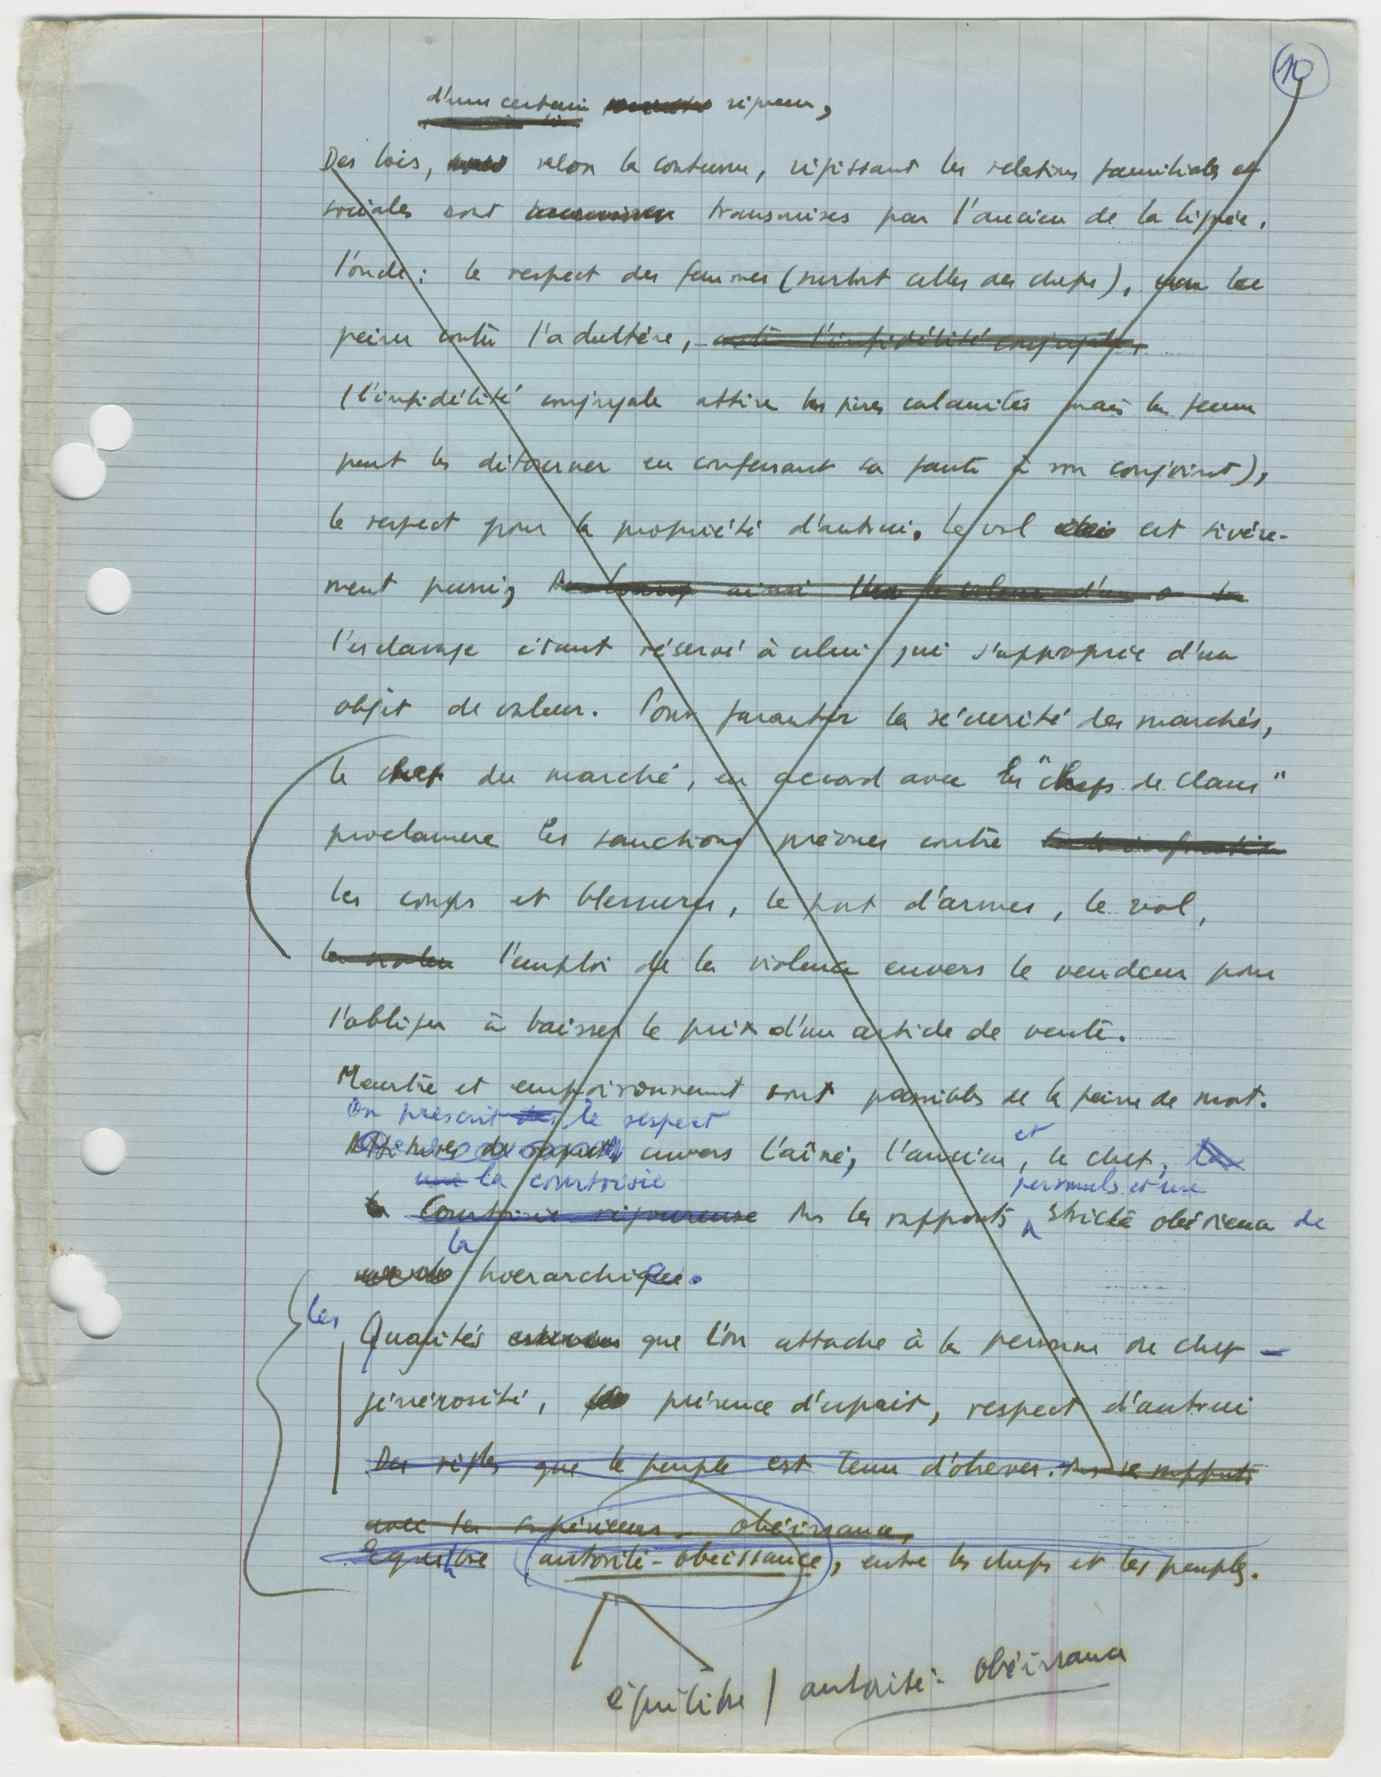 10
d'une certaine rigueur,
Des lois, selon la coutume, régissant les relations familiales et
sociales sont transmises par l'ancien de la lignée,
l'oncle : le respect des femmes (surtout celles des chefs), les
peines contre l'adultère, contre l'infidélité conjugale,
(l'infidélité conjugale attire les pires calamités mais la femme
peut les détourner en confessant sa faute à son conjoint),
le respect pour la propriété d'autrui. Le vol est sévère-
ment puni,
l'esclavage étant réservé à celui qui s'approprie d'un
objet de valeur. Pour garantir la sécurité des marchés,
le chef du marché, en accord avec les "chefs de clans"
proclamera les sanctions prévues contre
les coups et blessures, le port d'armes, le vol,
l'emploi de la violence envers le vendeur pour
l'obliger à baisser le prix d'un article de vente.
Meurtre et empoisonnement sont passibles de la peine de mort.
On prescrit le respect
envers l'aîné, l'ancien et le chef,
une la courtoisie personnels et une
Courtoisie rigoureuse ds les rapports stricte obéissance de
la
hiérarchique.
les
Qualités que l'on attache à la personne de chef –
générosité, présence d'esprit, respect d'autrui
Des règles que le peuple est tenu d'observer. ds les rapports
avec les supérieurs - obéissance,
Equilibre autorité - obéissance, entre les chefs et les peuples.
équilibre / autorité - obéissance